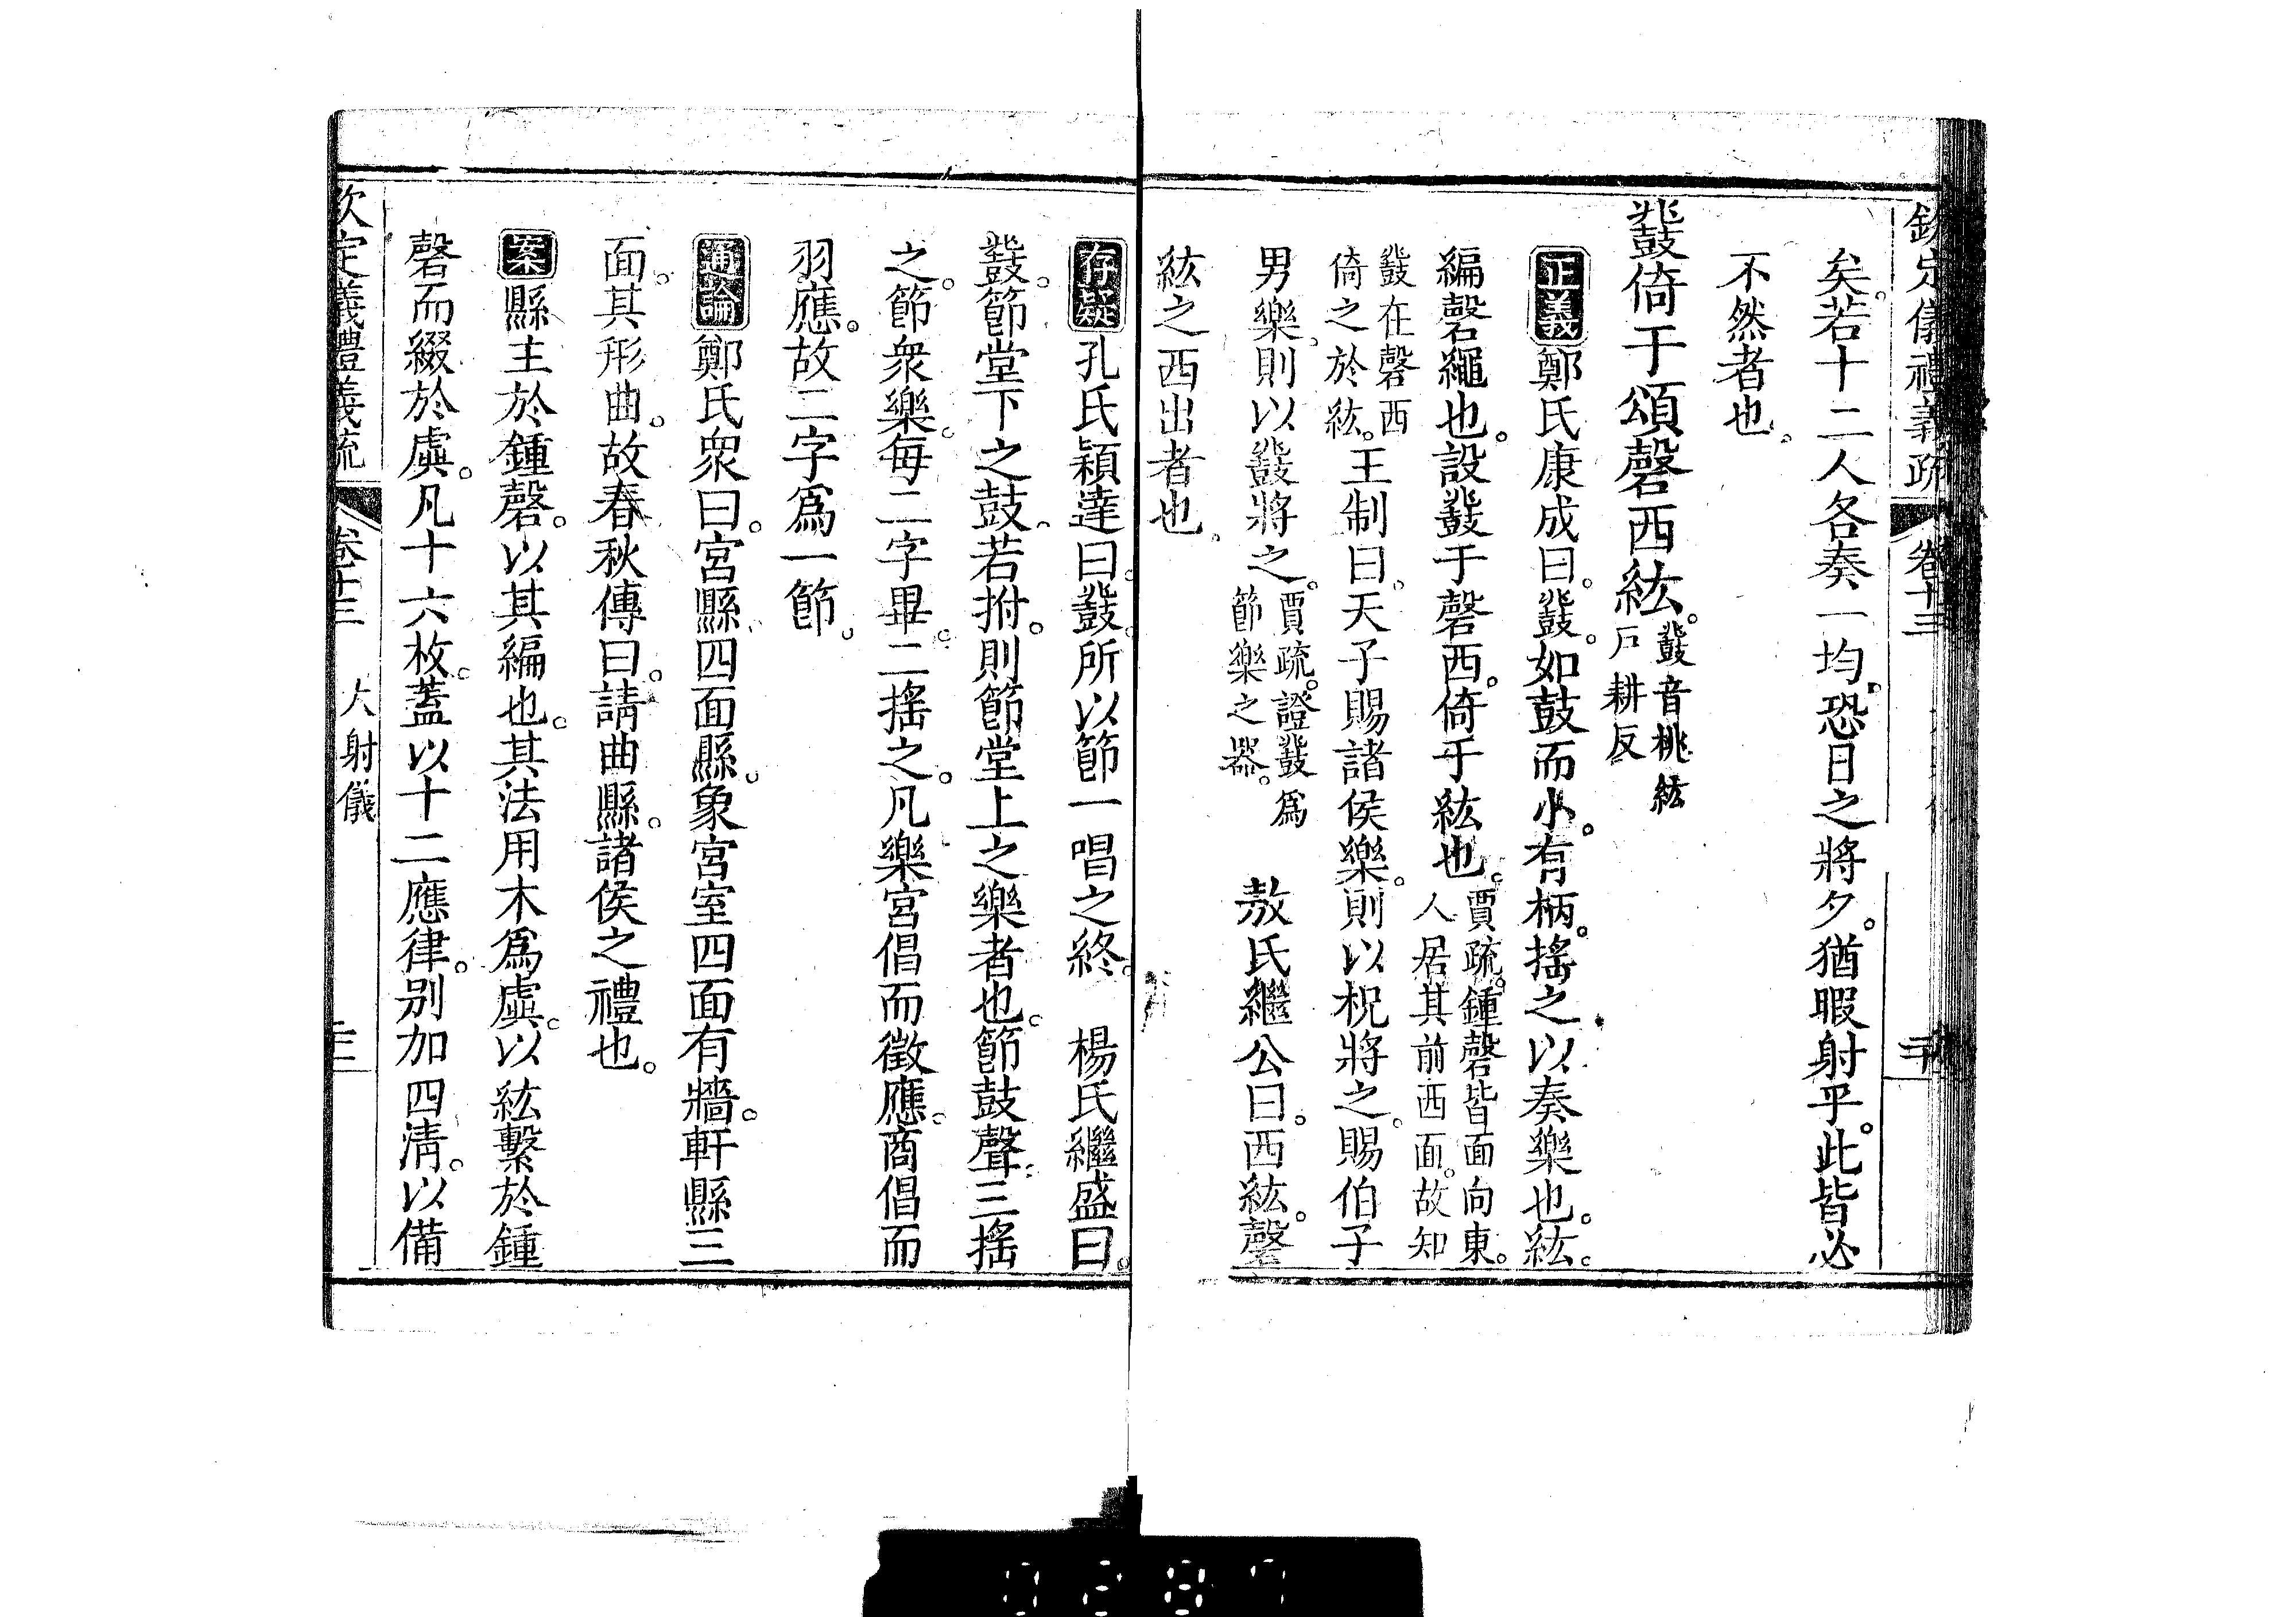 欽定儀禮義疏 卷十三
矣。若十二人各奏一均。恐日之將夕。猶暇射乎。此皆必
不然者也。
鼗倚于頌磬西紘。鼗音桃紘戶耕反
正義鄭氏康成曰。鼗。如鼓而小。有柄。搖之以奏樂也。紘。
編磬繩也。設鼗于磬西。倚于紘也。賈疏。鍾磬皆面向東。人居其前西面。故知
鼗在磬西倚之於紘。王制曰。天子賜諸侯樂。則以柷將之。賜伯子
男樂。則以鼗將之。賈疏。證鼗爲節樂之器。 敖氏繼公曰。西紘。磬
紘之西出者也。
存疑孔氏穎達曰。鼗。所以節一唱之終。 楊氏繼盛曰。
鼗。節堂下之鼓。若拊。則節堂上之樂者也。節鼓聲。三搖
之。節衆樂。每二字畢。二搖之。凡樂宮倡而徵應。商倡而
羽應。故二字爲一節。
通論鄭氏衆曰。宮縣四面縣。象宮室四面有牆。軒縣三
面。其形曲。故春秋傳曰。請曲縣。諸侯之禮也。
案縣主於鍾磬。以其編也。其法用木爲虡。以紘繫於鍾
磬而綴於虡。凡十六枚。蓋以十二應律。別加四淸。以備
欽定儀禮義疏 卷十三 大射儀